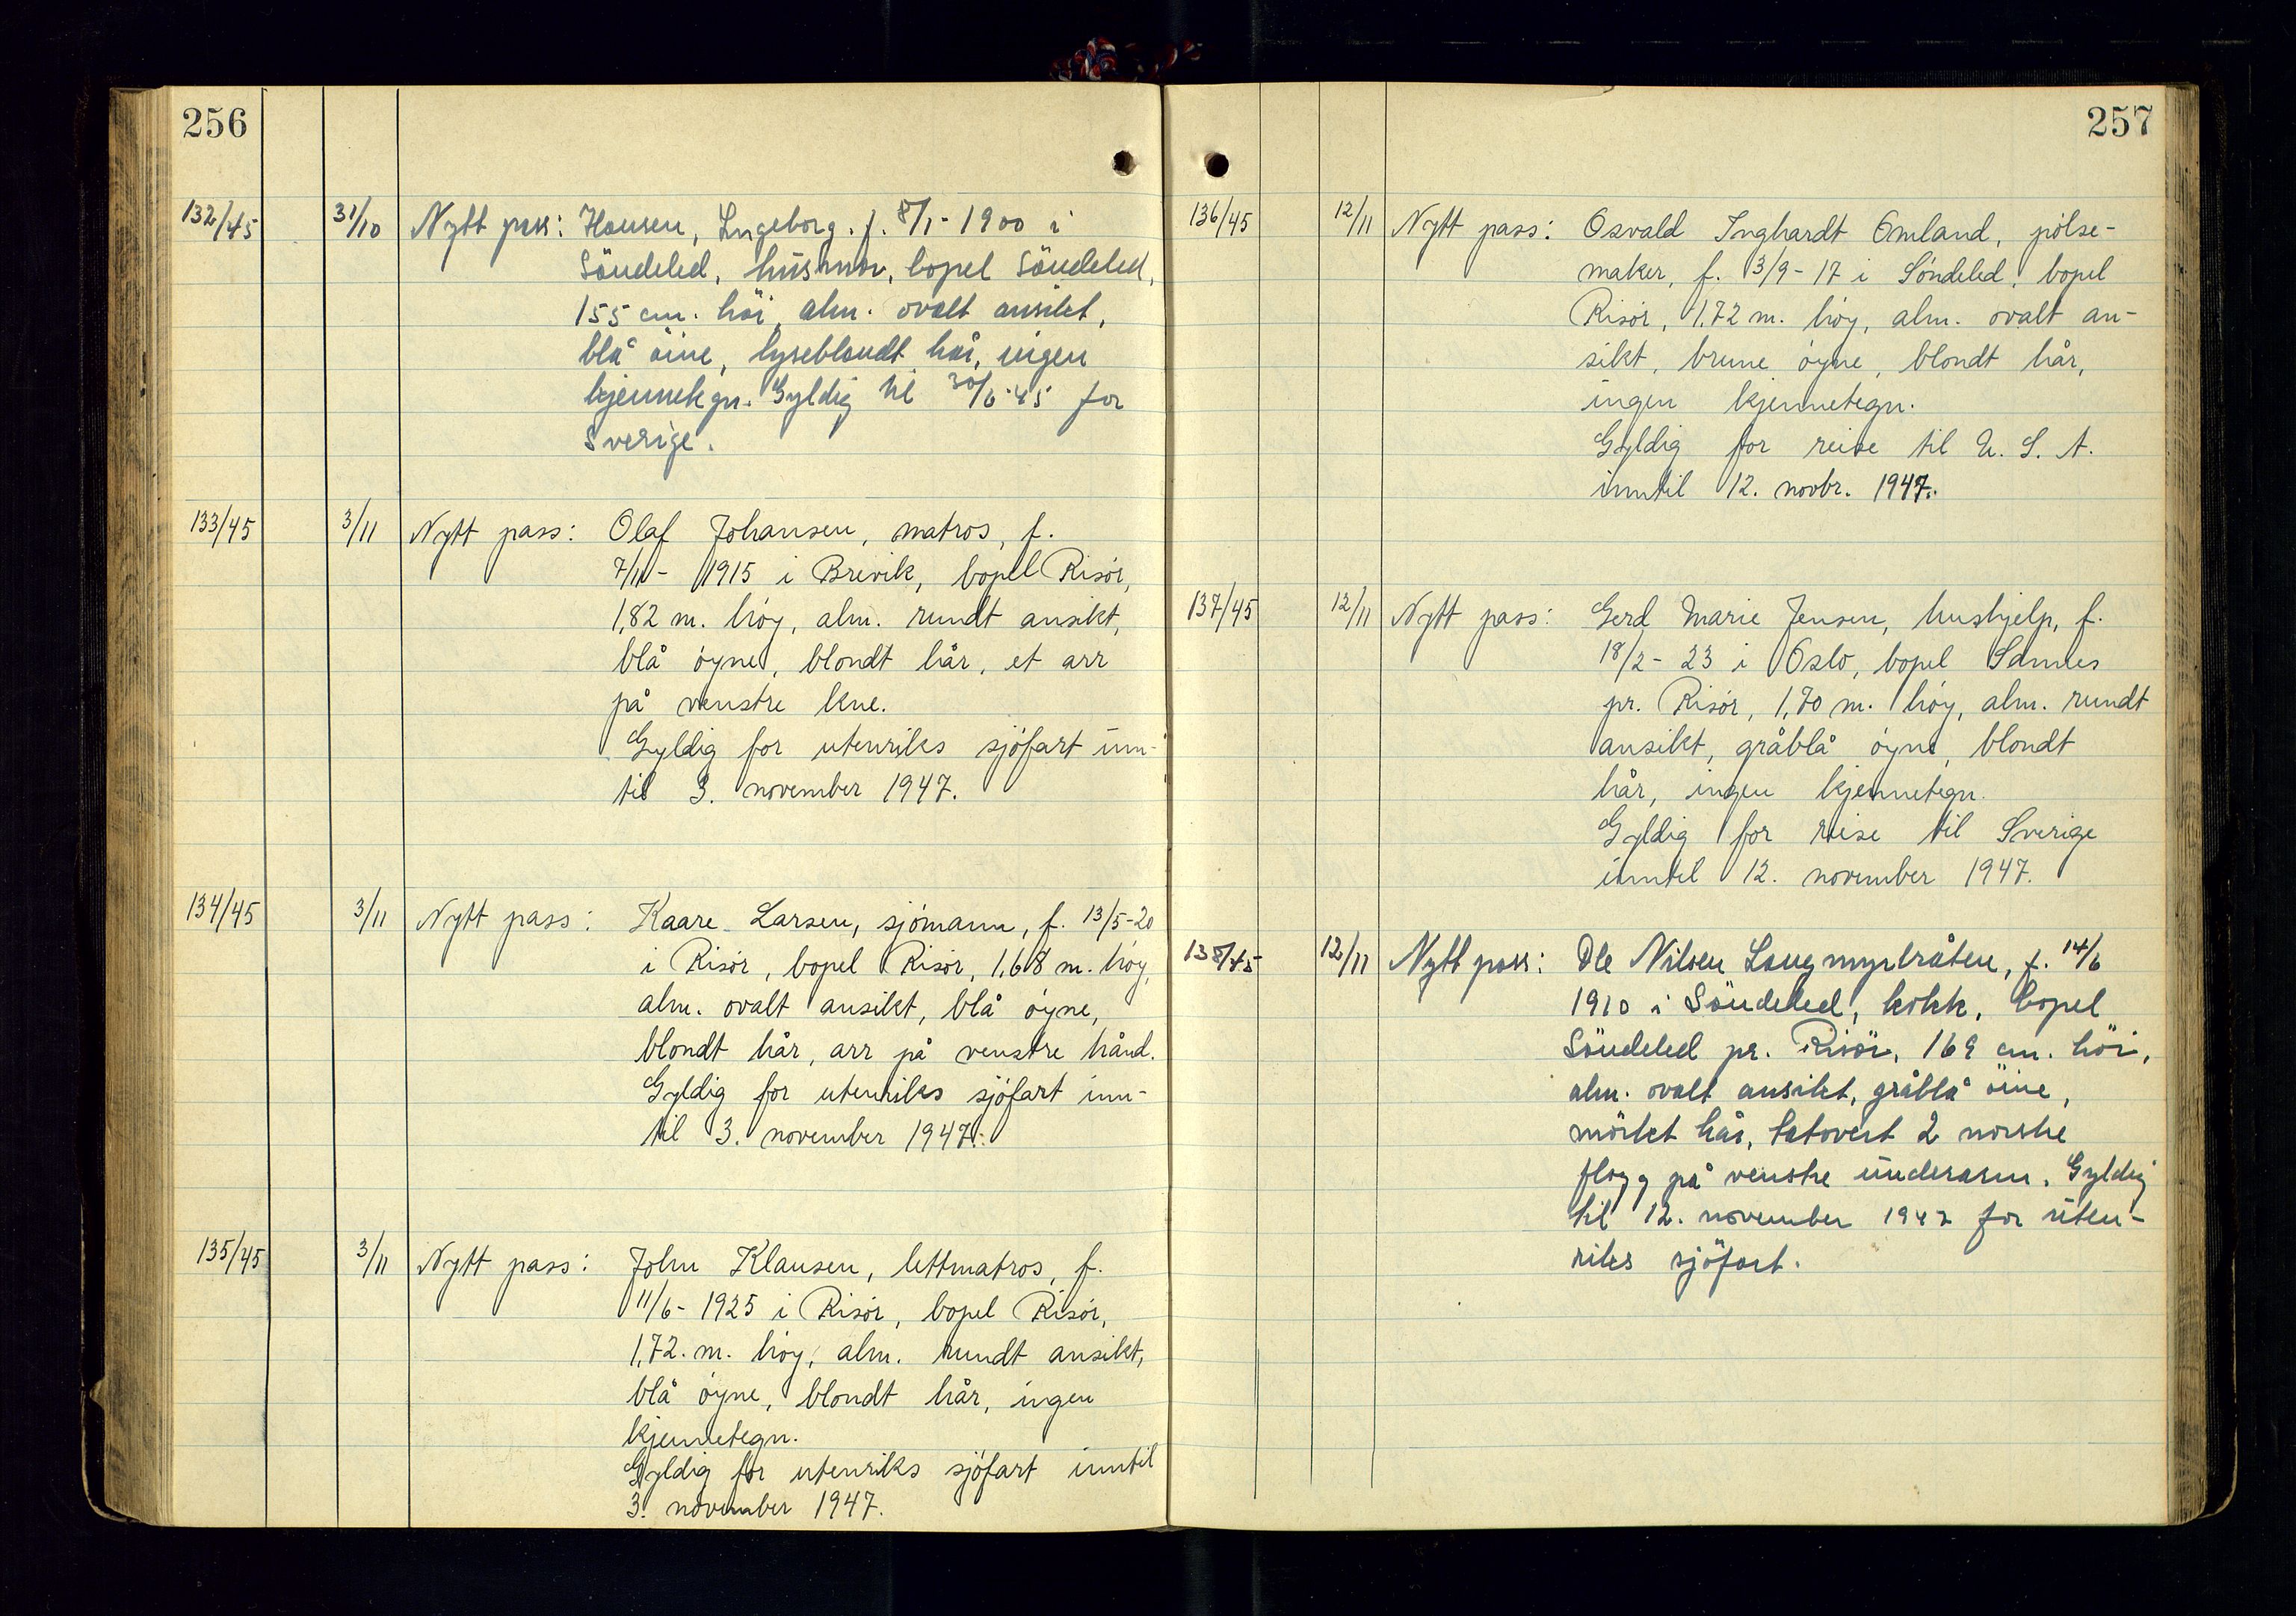 256
132/45 31/10 Nytt pass: Hansen, Ingeborg. f. 8/1-1900 i
Söndeled, husmor, bopel Söndeled,
155 cm. höi, alm. ovalt ansikt,
blå öine, lyseblondt hår, ingen
kjennetegn. Gyldig til 30/6-45 for
Sverige.
133/45 3/11 Nytt pass: Olaf Johansen, matros, f.
7/11- 1915 i Brevik, bopel Risór,
1,82 m. hóy, alm. rundt ansikt,
blå óyne, blondt hår, et arr
på venstre kne.
Gyldig for utenriks sjófart inn-
til 3. november 1947.
134/45 3/11 Nytt pass: Kaare Larsen, sjómann, f. 13/5-20
i Risór, bopel Risór, 1,68 m. hóy,
alm. ovalt ansikt, blå óyne,
blondt hår, arr på venstre hånd.
Gyldig for utenriks sjófart inn-
til 3. november 1947.
135/45 3/11 Nytt pass: John Klausen, lettmatros, f.
11/6- 1925 i Risór, bopel Risór,
1,72. m. hóy, alm. rundt ansikt,
blå óyne, blondt hår, ingen
kjennetegn.
Gyldig for utenriks sjófart inntil
3. november 1947.
257
136/45 12/11 Nytt pass: Osvald Inghardt Omland, pólse-
maker, f. 3/9-17 i Sóndeled, bopel
Risór, 1,72 m. hóy, alm. ovalt an-
sikt, brune óyne, blondt hår,
ingen kjennetegn.
Gyldig for reise til U. S. A.
inntil 12. novbr. 1947.
137/45 12/11 Nytt pass: Gerd Marie Jensen, hushjelp, f.
18/2- 23 i Oslo, bopel Sannes
pr. Risór, 1,70 m. hóy, alm. rundt
ansikt, gråblå óyne, blondt
hår, ingen kjennetegn.
Gyldig for reise til Sverige
inntil 12. november 1947.
138/45 12/11 Nytt pass: Ole Nilsen Langmyrbråten, f. 14/6
1910 i Söndeled, kokk, bopel
Söndeled pr. Risör, 169 cm. höi,
alm. ovalt ansikt, gråblå öine,
mörket hår, tatovert 2 norske
flagg på venstre underarm. Gyldig
til 12. november 1947 for uten-
riks sjöfart.